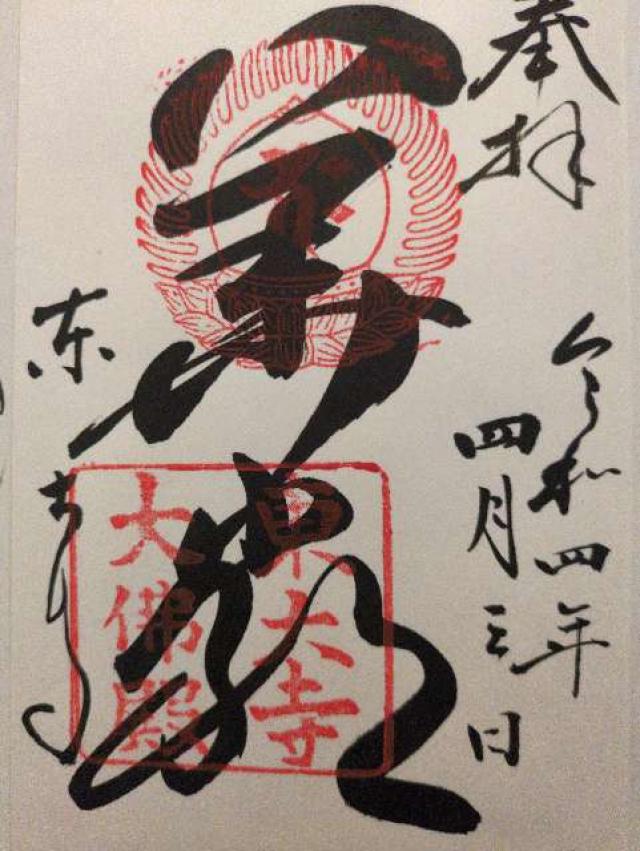 奉拝
令和四年
四月三日
華厳
東大寺
東大寺
大佛殿